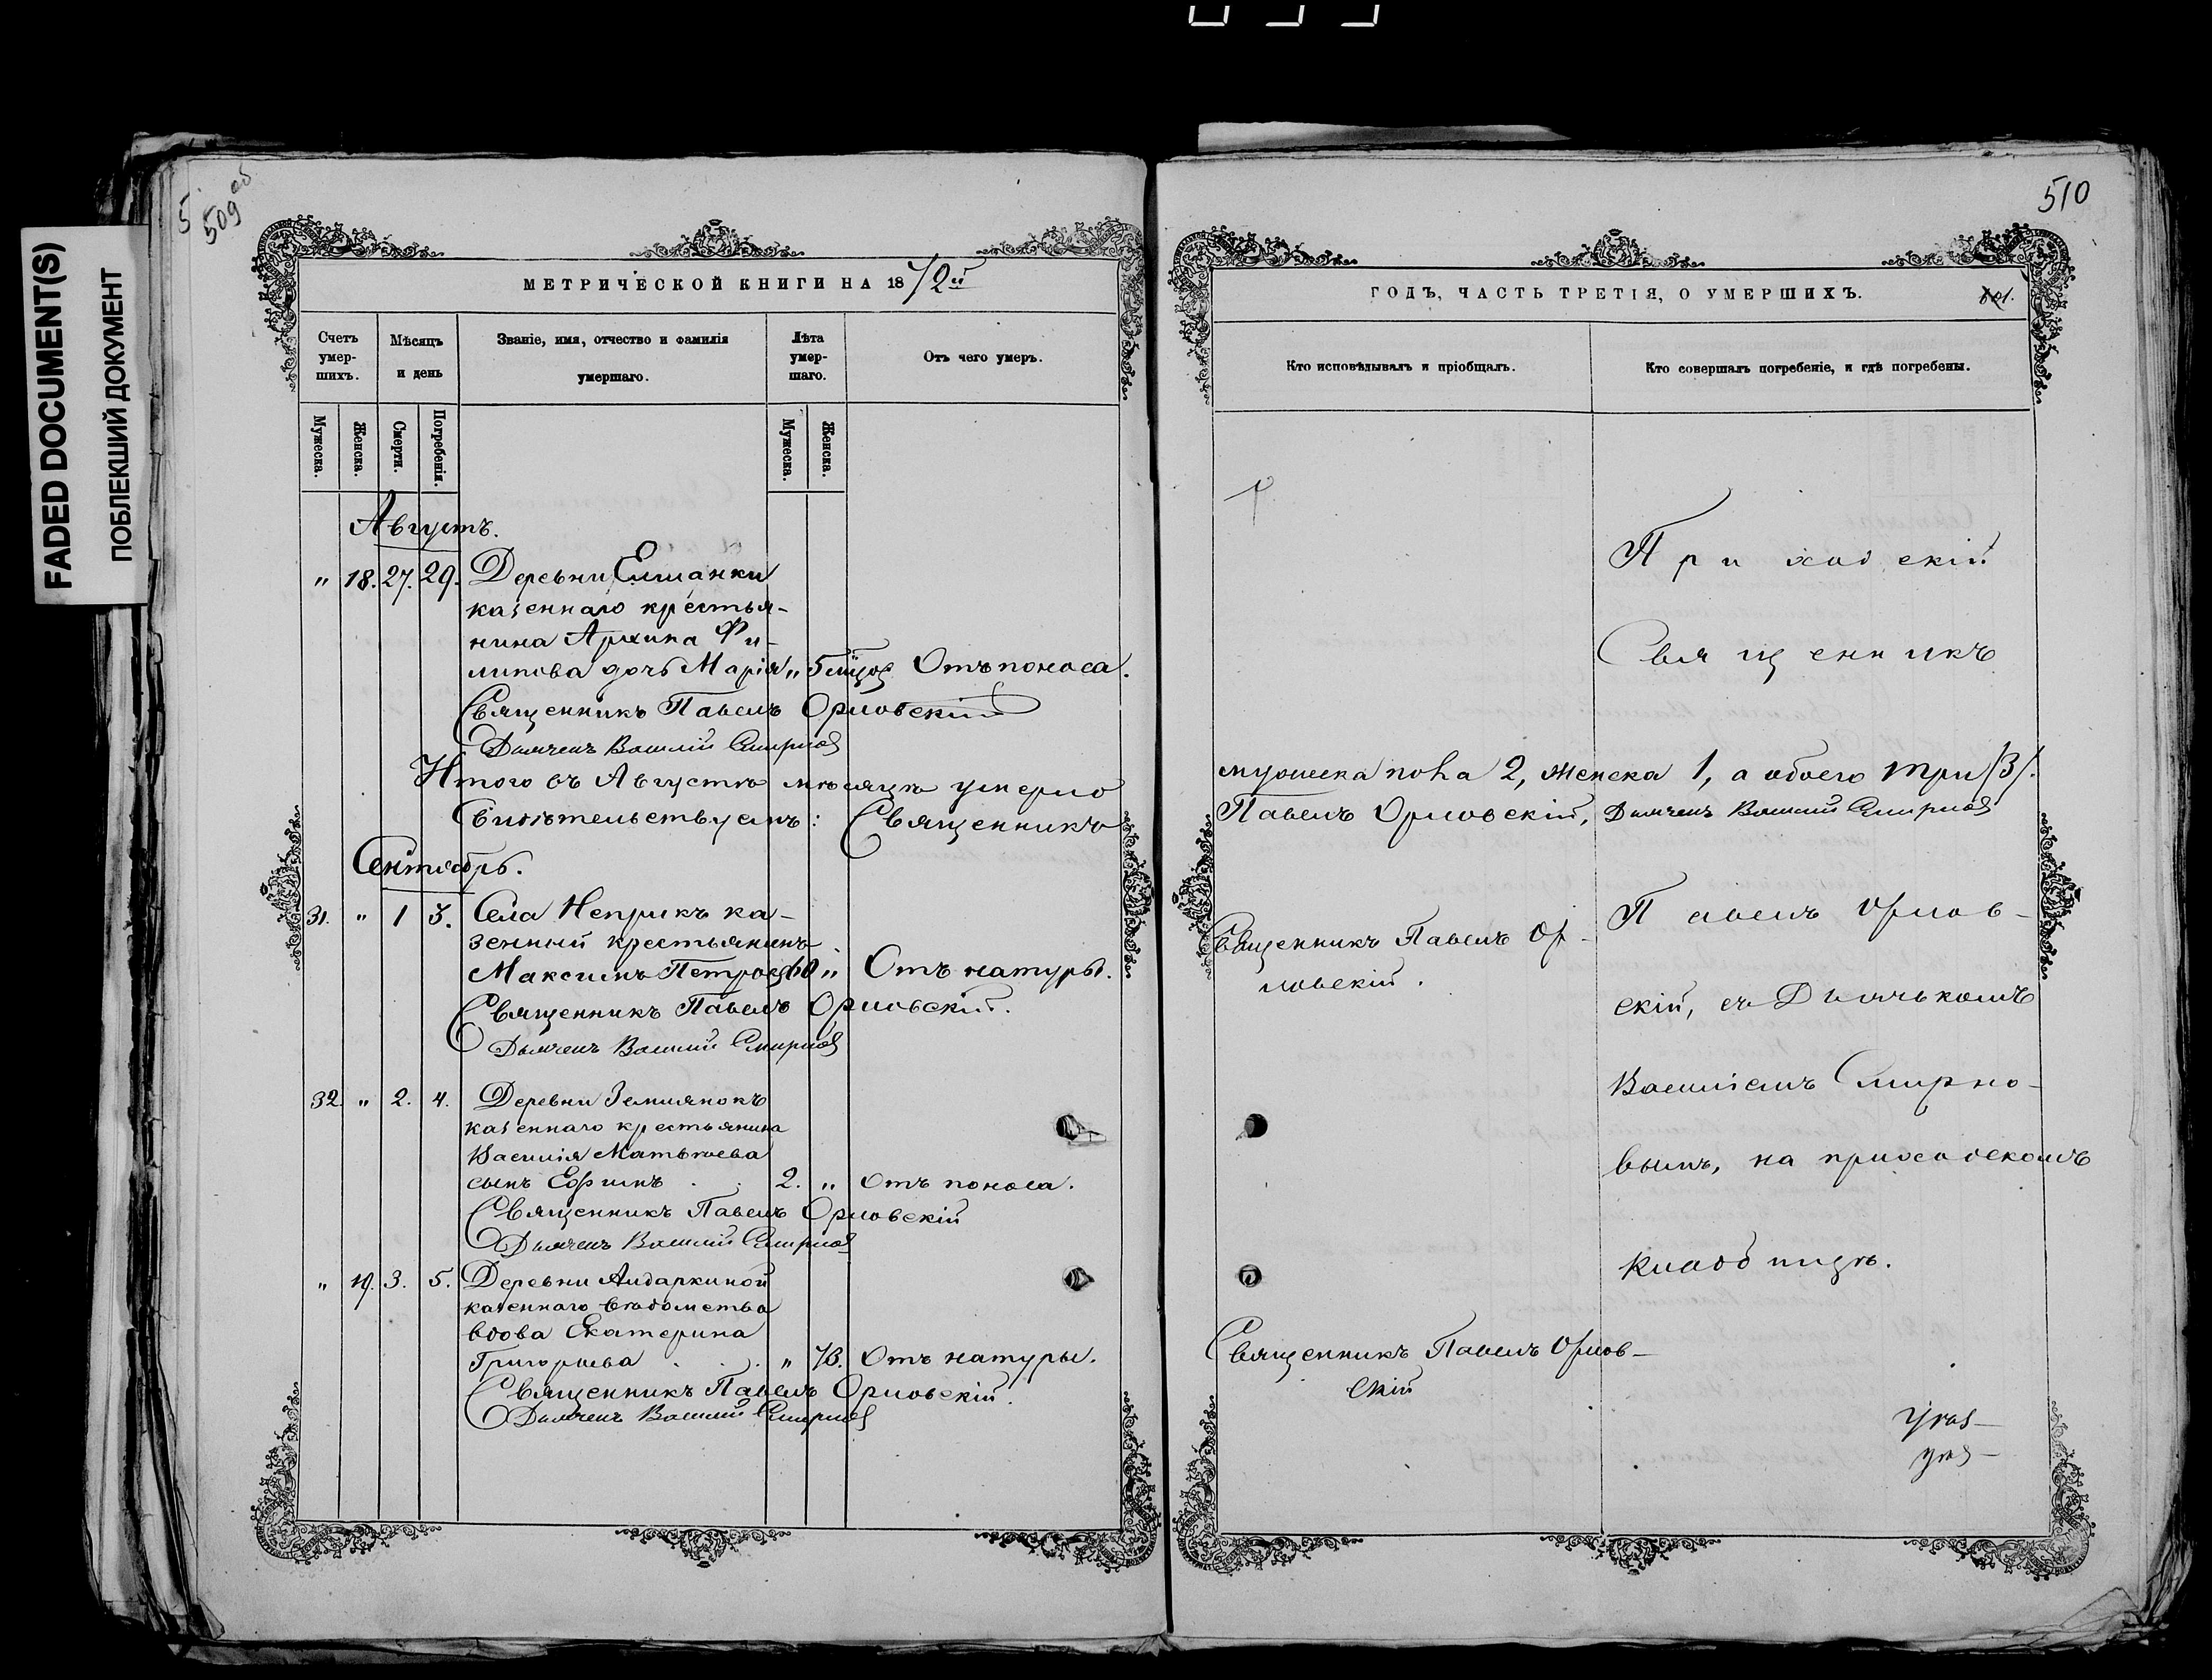 FADED DOCUMENT(S)
ПОБЛЕКШИЙ ДОКУМЕНТ
5
509 об
МЕТРИЧЕСКОЙ КНИГИ НА 1872й
Счетъ умер-шихъ.
Мѣсяцъ и день
Званіе, имя, отчество и фамилія умершаго.
Лѣта умер-шаго.
Отъ чего умеръ.
Мужеска.
Женска.
Смерти.
Погребенія.
Мужеска.
Женска.
Августъ.
" 18. 27. 29. Деревни Елшанки
казеннаго крестья-
нина Архипа Фи-
липова дочь Марія " 5 мѣцов Отъ поноса.
Священникъ Павелъ Орловскій
Дьячекъ Василій Смирнов
Итого въ Августѣ мѣсяцѣ умерло
Свидѣтельствуемъ: Священникъ
Сентябрь.
31. " 1 3. Села Неприкъ ка-
зенный крестьянинъ
Максимъ Петров 60 " Отъ натуры.
Священникъ Павелъ Орловскій.
Дьячекъ Василій Смирнов
32. " 2. 4. Деревни Землянокъ
казеннаго крестьянина
Василія Матвѣева
сынъ Ефимъ . . 2. " Отъ поноса.
Священникъ Павелъ Орловскій
Дьячекъ Василій Смирнов
" 19. 3. 5. Деревни Аидаркиной
казеннаго вѣдомства
вдова Екатерина
Григорьева . . . " 73. Отъ натуры.
Священникъ Павелъ Орловскій.
Дьячекъ Василій Смирнов
510
ГОДЪ, ЧАСТЬ ТРЕТІЯ, О УМЕРШИХЪ.
Кто исповѣдывалъ и пріобщалъ.
Кто совершалъ погребеніе, и гдѣ погребены.
Приходскій
Священникъ
мужеска пола 2, женска 1, а обоего три /3/.
Павелъ Орловскій, Дьячекъ Василій Смирнов
Священникъ Павелъ Ор-
ловскій.
Павелъ Орлов-
скій, съ Дьячькомъ
Василіемъ Смирно-
вымъ, на приходскомъ
кладбищѣ.
Священникъ Павелъ Орлов-
скій